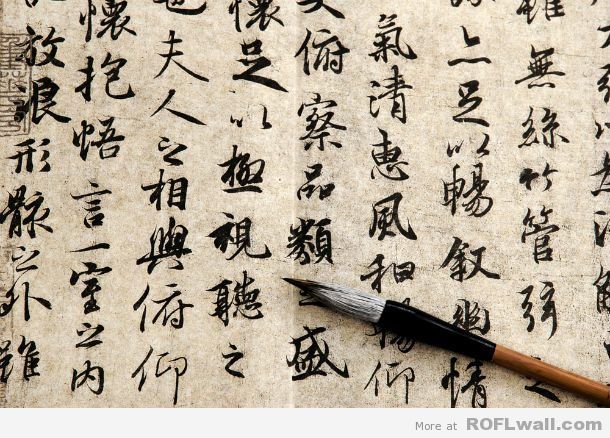 以為流
雖無絲竹管弦之
亦足以暢敘幽情
氣清惠風和暢仰
大俯察品類之盛
懷足以極視聽之
也夫人之相與俯仰
懷抱悟言一室之內
放浪形骸之外雖
More at ROFLwall.com